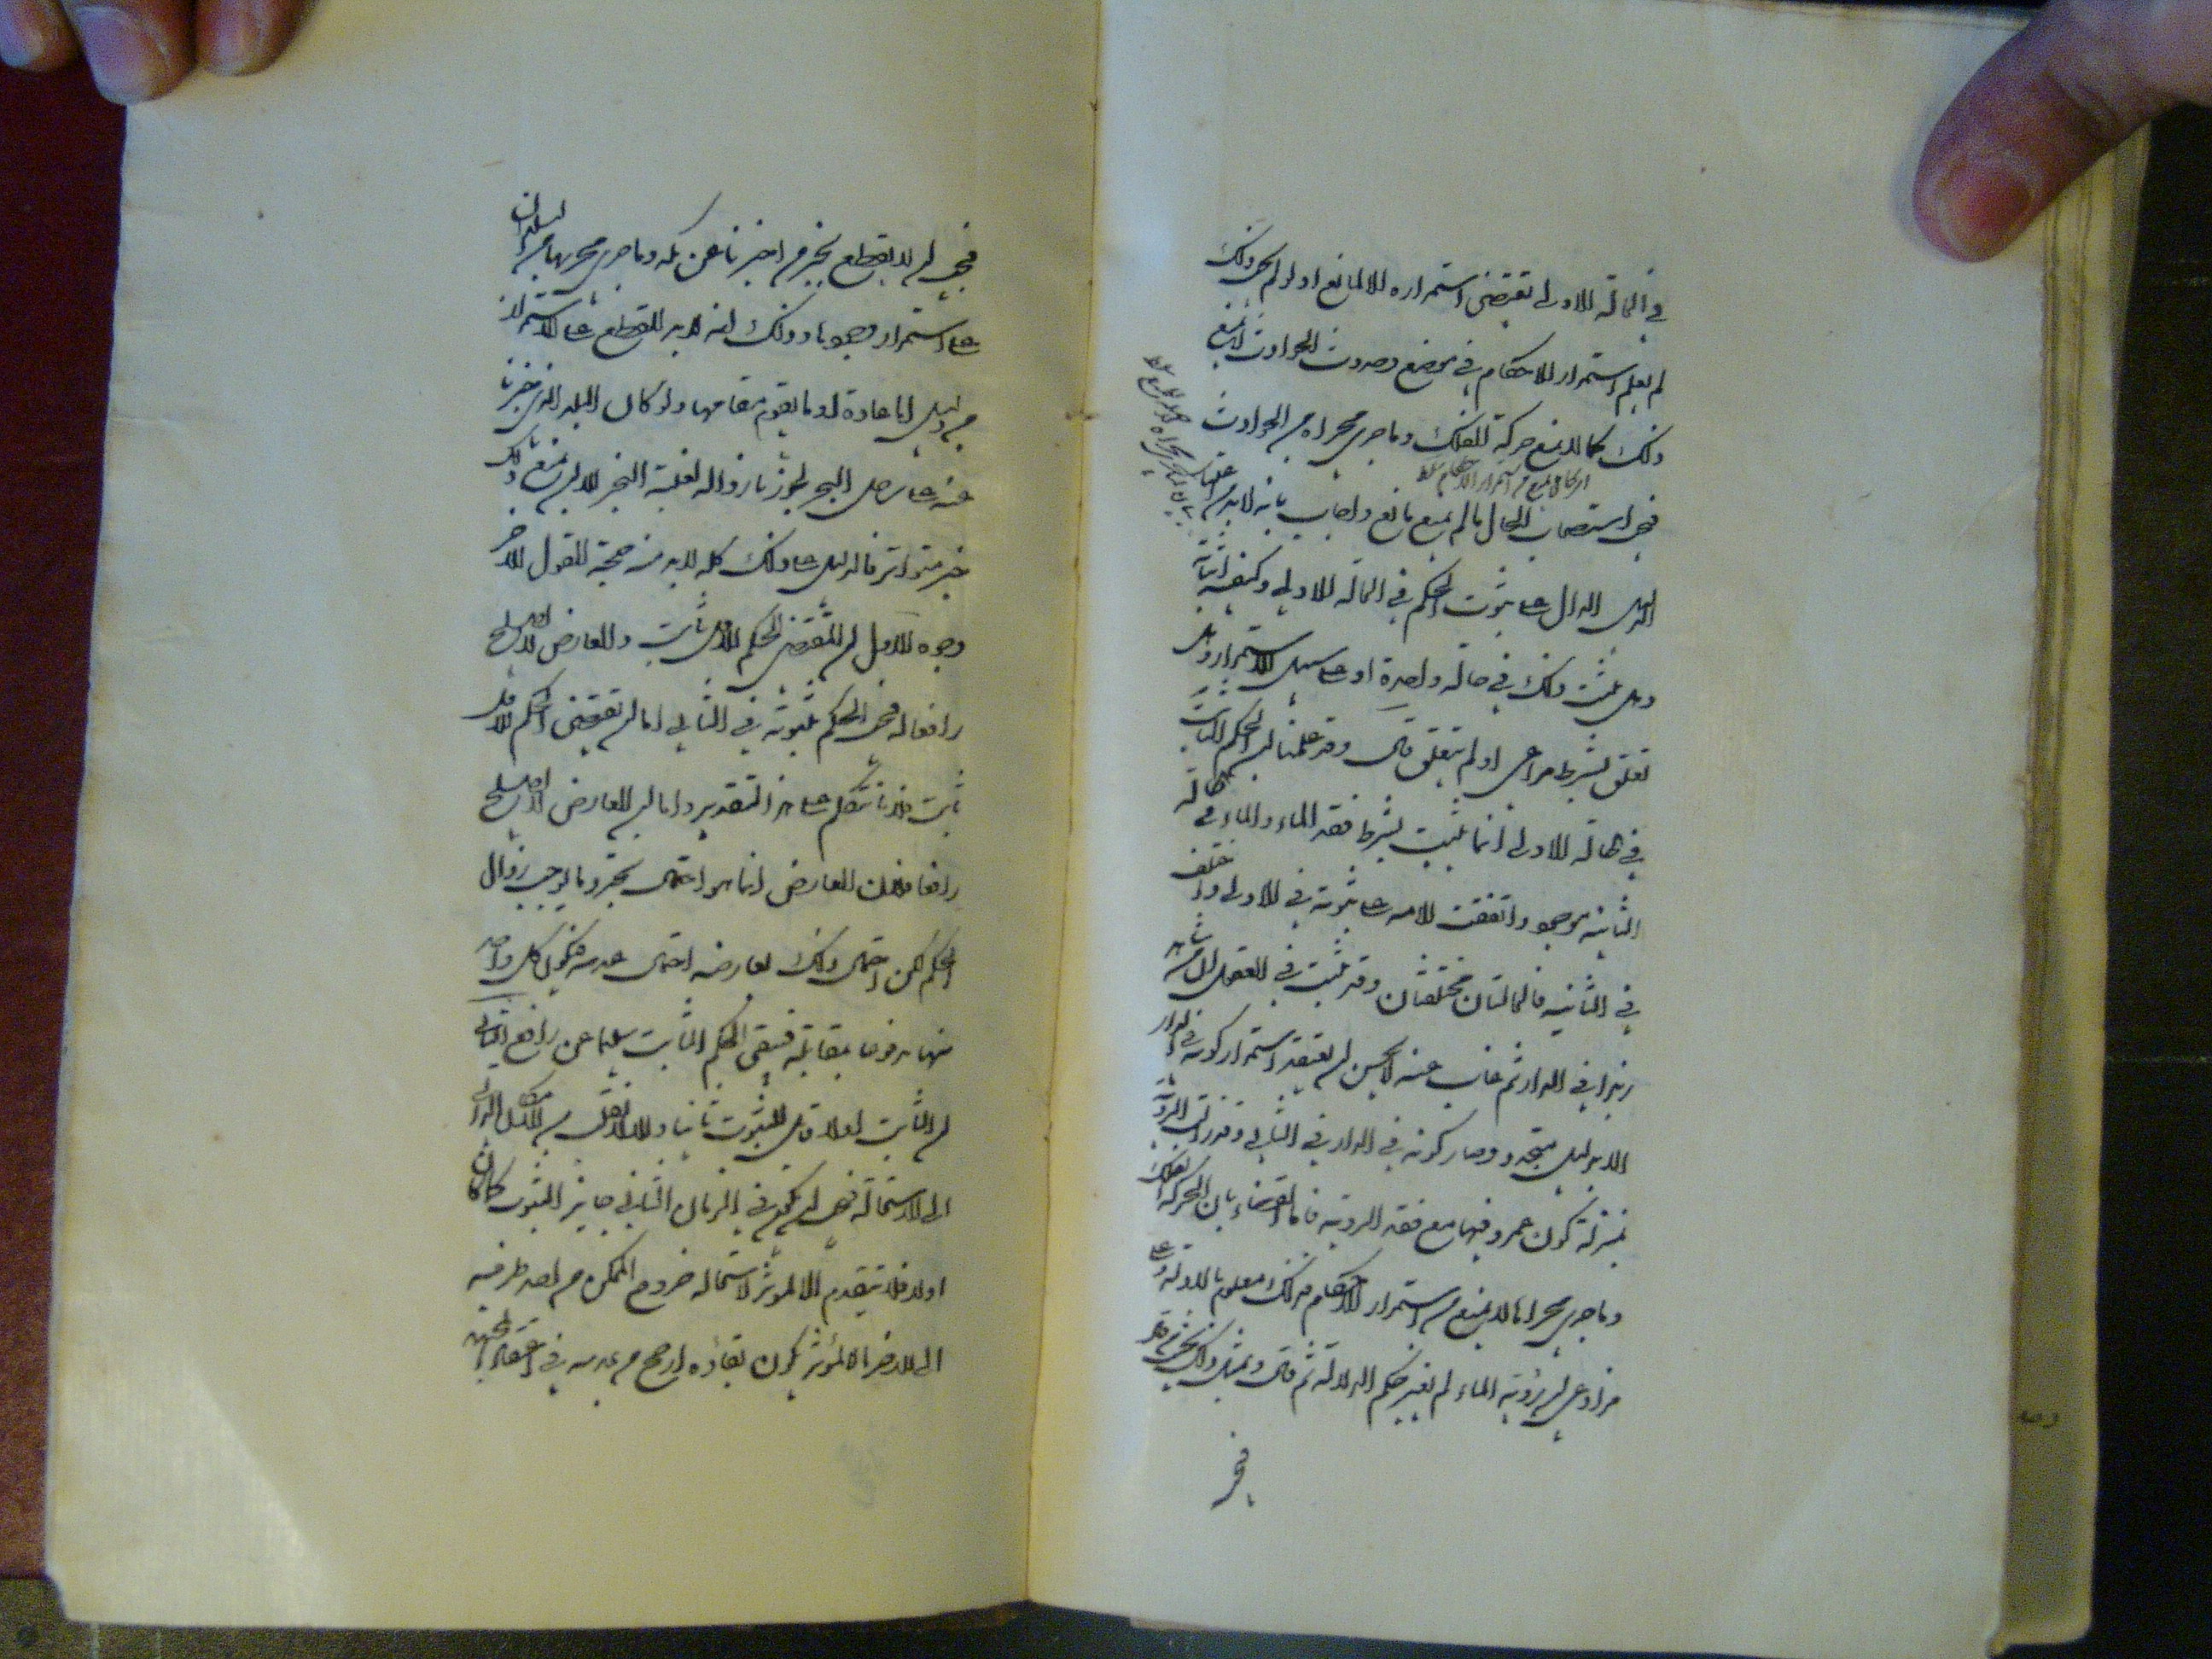 في الحالة الاولى يقتضى استمراره الا لمانع اذ لو لم يجر ذلك
لم يعلم استمرار الاحكام في موضع وحدوث الحوادث لا يمنع
ذلك كما لا يمنع حركة الفلك وما جرى مجراه من الحوادث
فيجب استصحاب الحال ما لم يمنع مانع واجاب بانه لا بد من اعتبار
الدليل الدال على ثبوت الحكم في الحالة الاولى وكيفية اثباته
وهل يثبت ذلك في حالة واحدة او على سبيل الاستمرار وهل
تعلق بشرط مراعى او لم يتعلق قال وقد علمنا ان الحكم الثابت
في الحالة الاولى انما يثبت بشرط فقد الماء والماء في الحالة
الثانية موجود واتفقت الامه على ثبوته في الاولى واختلف
في الثانيه فالحالتان مختلفتان وقد ثبت في العقول ان من شاهد
زيدا في الدار ثم غاب عنه لا يحسن ان يعتقد استمرار كونه في الدار
الا بدليل متجدد وصار كونه في الدار في الثاني وقد زالت الروية
بمنزلة كون عمرو فيها مع فقد الروية فاما القضاء بان حركة الفلك
وما جرى مجراها لا يمنع من استمرار الاحكام فذلك معلوم بالادلة وعلى
من ادعى ان رؤية الماء لم يغير حكم الدلالة ثم قال وبمثل ذلك نجيب من قال
فيجب
فيجب ان لا يقطع بخبر من اخبرنا عن مكه وما جرى مجريها من البلدان
على استمرار وجودها وذلك انه لا بد للقطع على الاستمرار
من دليل اما عادة او ما يقوم مقامها ولو كان البلد الذي خبرنا
عنه على ساحل البحر لجوزنا زواله لغلبة البحر الا ان يمنع من ذلك
خبر متواتر فالدليل على ذلك كله لا بد منه حجة القول الاخر
وجوه الاول ان المقتضى للحكم الاول ثابت والعارض لا يصلح
رافعا له فيجب الحكم بثبوته في الثاني اما ان مقتضى الحكم الاول
ثابت فلانا نتكلم على هذا التقدير واما ان العارض لا يصلح
رافعا فلان العارض انما هو احتمال تجدد ما يوجب زوال
الحكم لكن احتمال ذلك يعارضه احتمال عدمه فيكون كل واحد
منهما مدفوعا بمقابله فيبقى الحكم الثابت سليما عن رافع الثاني
ان الثابت اولا قابل للثبوت ثانيا والا لانقلب من الامكان الذاتي
الى الاستحالة فيجب ان يكون في الزمان الثاني جايز الثبوت كما كان
اولا فلا ينعدم الا لمؤثر لاستحالة خروج الممكن من احد طرفيه
الى الاخر الا لمؤثر فيكون بقاؤه ارجح من عدمه في اعتقاد المجتهد